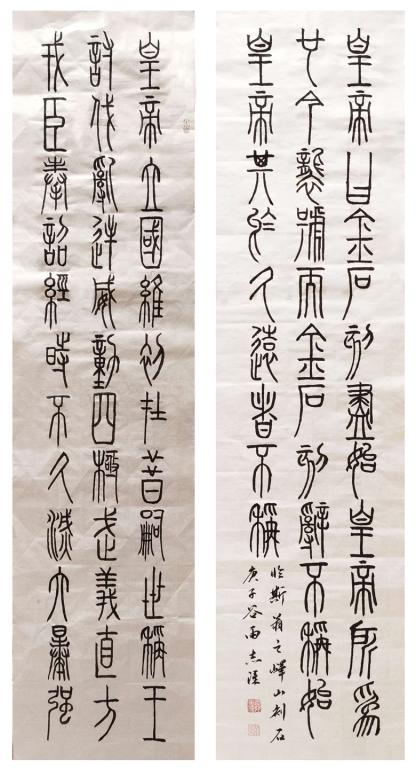 皇帝曰金石刻盡始皇帝所爲
也今襲號而金石刻辭不稱始
皇帝其於久遠者不稱
臨斯翁之嶧山刻石
庚子谷雨志
皇帝立國維初在昔嗣世稱王
討伐亂逆威動四極武義直方
戎臣奉詔經時不久滅六暴強